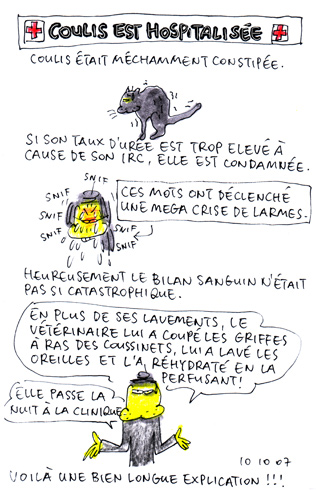 COULIS EST HOSPITALISÉE
COULIS ÉTAIT MÉCHAMMENT CONSTIPÉE.
SI SON TAUX D'URÉE EST TROP ELEVÉ À
CAUSE DE SON IRC, ELLE EST CONDAMNÉE.
SNIF
SNIF
SNIF
SNIF
SNIF
SNIF
SNIF
CES MOTS ONT DÉCLENCHÉ
UNE MEGA CRISE DE LARMES.
HEUREUSEMENT LE BILAN SANGUIN N'ÉTAIT
PAS SI CATASTROPHIQUE.
EN PLUS DE SES LAVEMENTS, LE
VÉTÉRINAIRE LUI A COUPÉ LES GRIFFES
À RAS DES COUSSINETS, LUI A LAVÉ LES
OREILLES ET L'A RÉHYDRATÉ EN LA
PERFUSANT!
ELLE PASSE LA
NUIT À LA CLINIQUE
10 10 07
VOILÀ UNE BIEN LONGUE EXPLICATION !!!